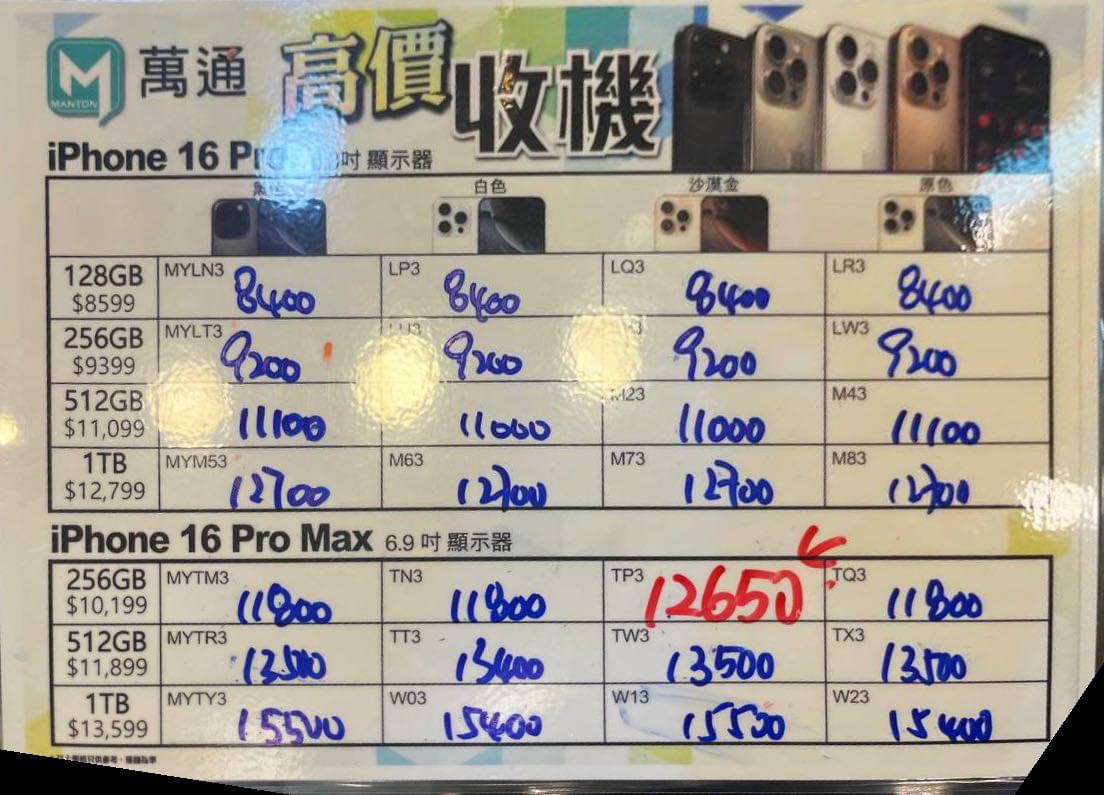 M
MANTON
萬通
高價收機
iPhone 16 Pr 吋 顯示器
白色 沙漠金 原色
128GB MYLN3 LP3 LQ3 LR3
$8599 8400 8400 8400 8400
256GB MYLT3 LW3
$9399 9200 9200 9200 9200
512GB M23 M43
$11,099 11100 11000 11000 11100
1TB MYM53 M63 M73 M83
$12,799 12700 12700 12700 12700
iPhone 16 Pro Max 6.9 吋 顯示器
256GB MYTM3 TN3 TP3 TQ3
$10,199 11800 11800 12650 11800
512GB MYTR3 TT3 TW3 TX3
$11,899 13500 13400 13500 13500
1TB MYTY3 W03 W13 W23
$13,599 15500 15400 15500 15400